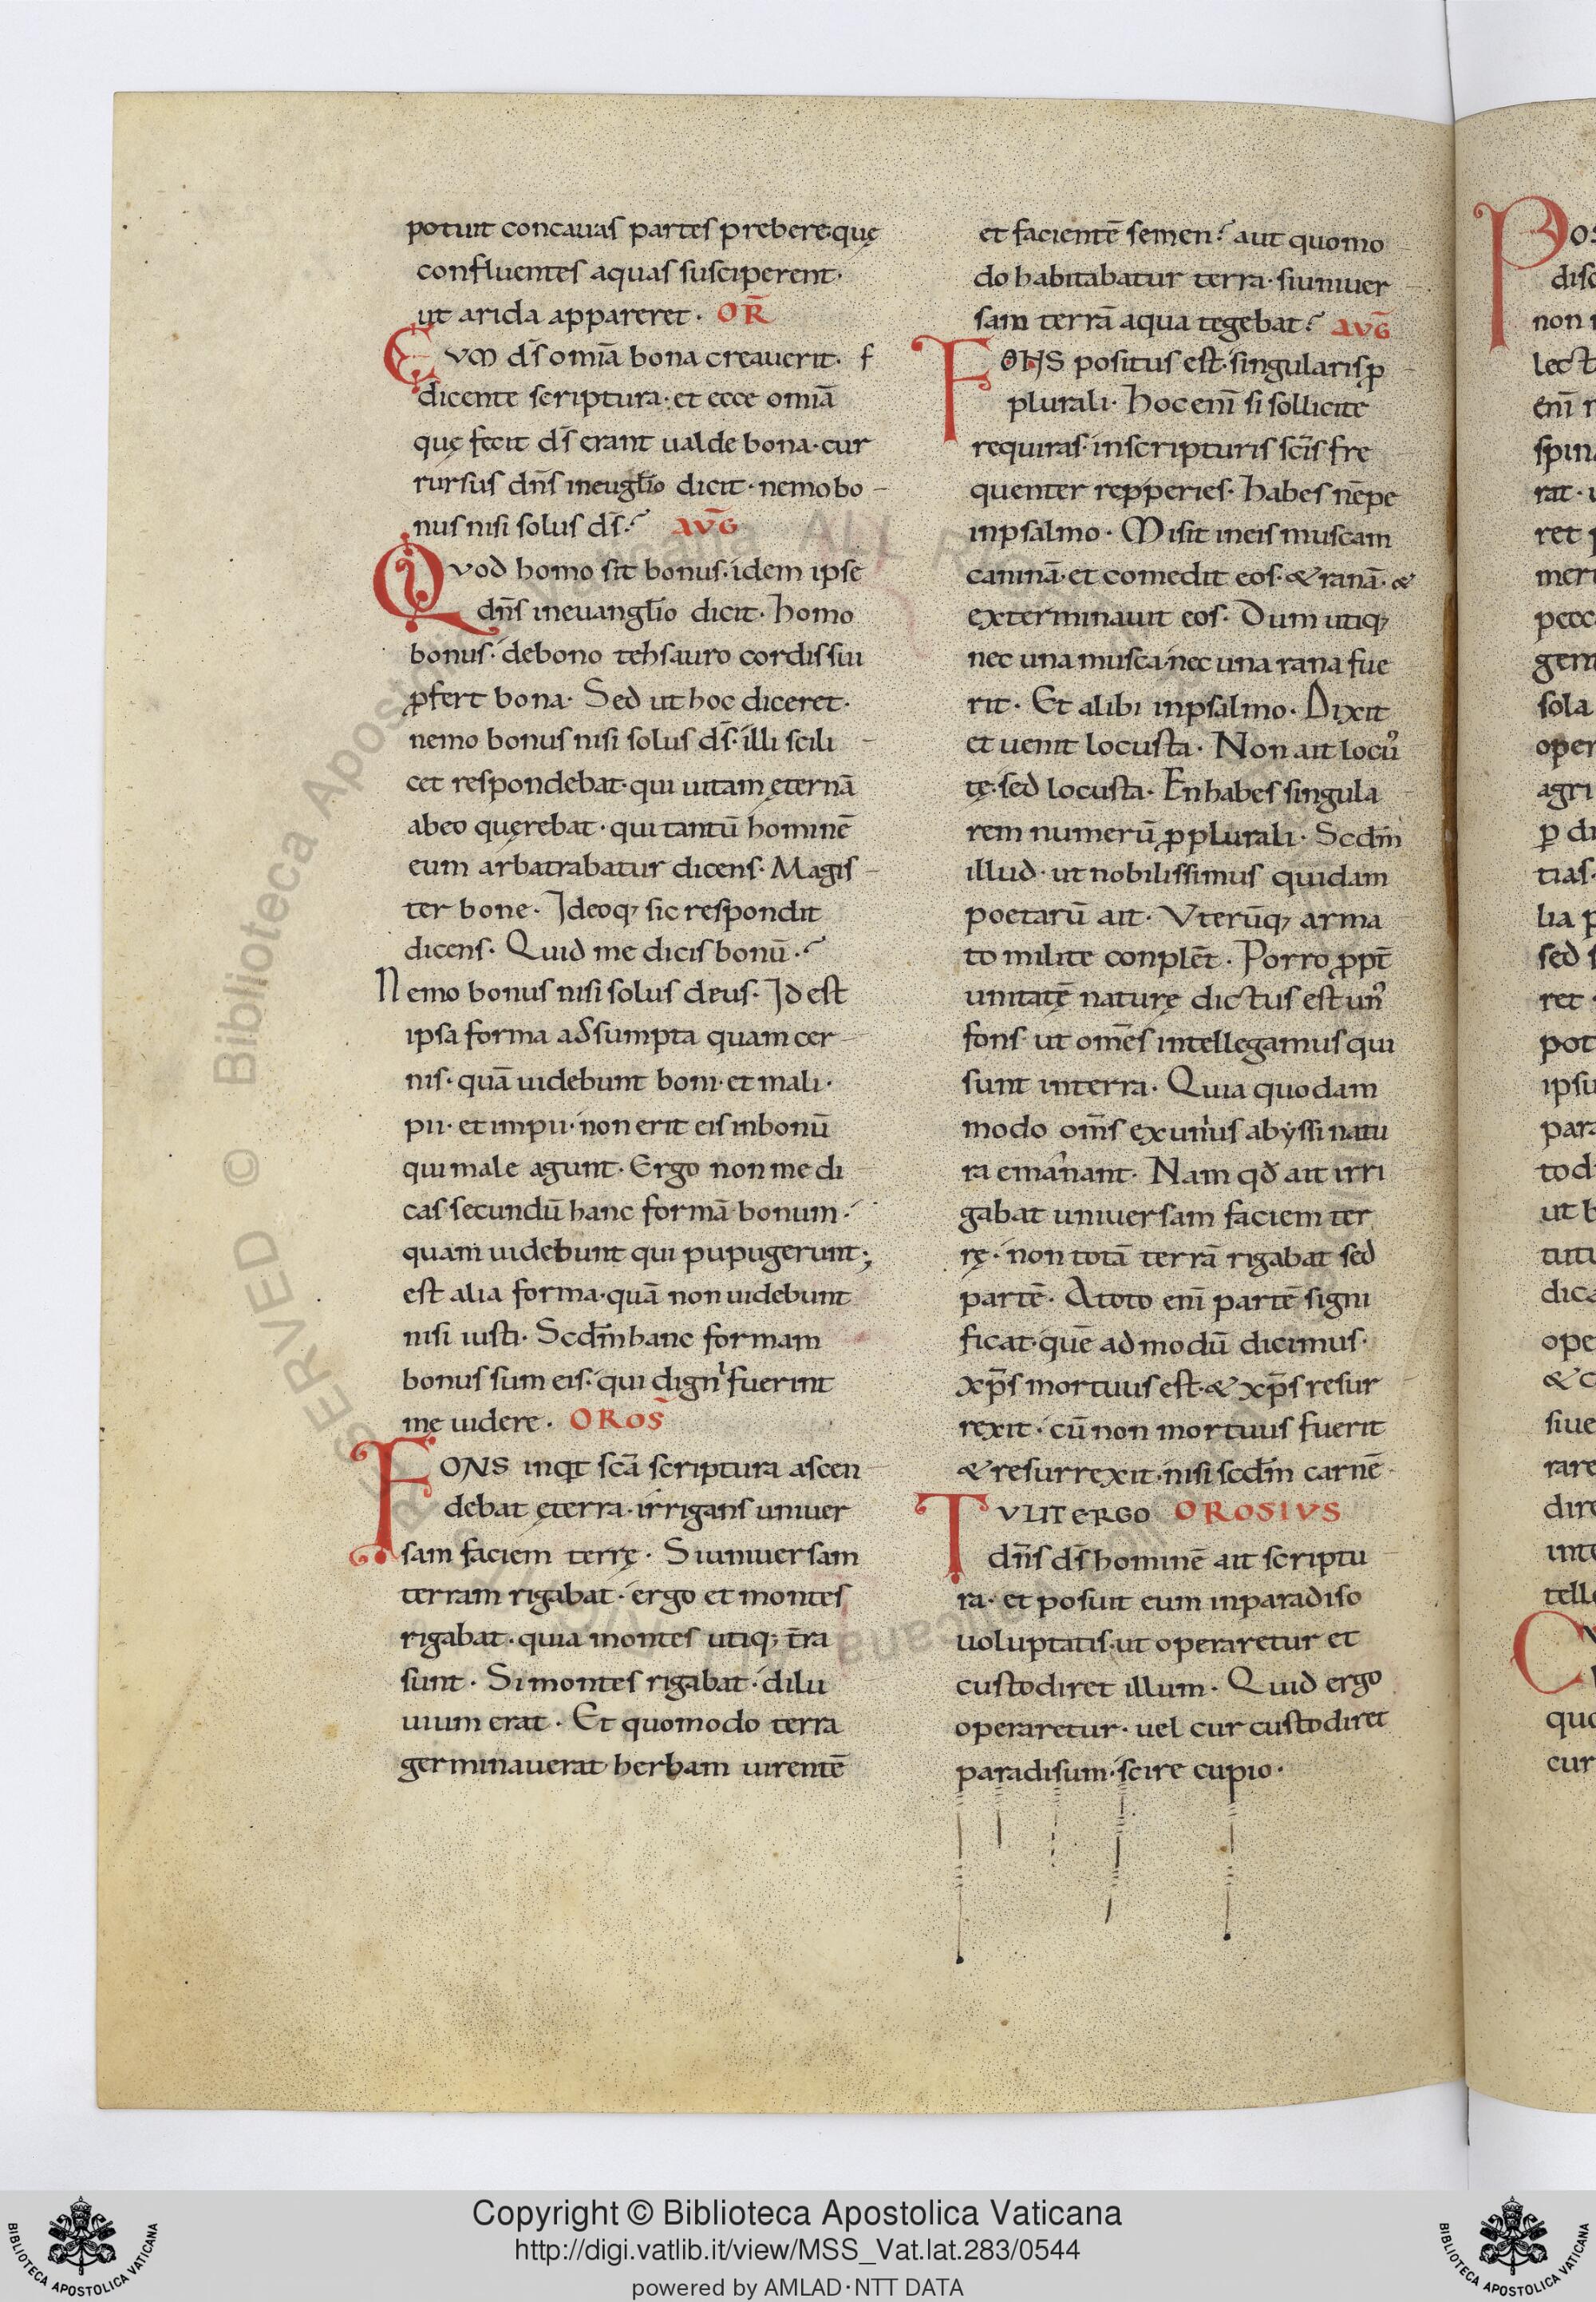 potuit concauas partes prebere·quę
confluentes aquas susciperent·
ut arida appareret· OR̄
Cum d̄s omīa bona creauerit· f
dicente scriptura· et ecce omīa
quę fecit d̄s erant ualde bona· cur
rursus dn̄s in eugl̄io dicit· nemo bo
nus nisi solus d̄s? AVḠ
Quod homo sit bonus· idem ipse
dn̄s in evangl̄io dicit· homo
bonus· de bono tehsauro cordis sui
ꝓfert bona· Sed ut hoc diceret·
nemo bonus nisi solus d̄s· illi scili
cet respondebat· qui uitam ęternā
ab eo querebat· qui tantū hominē
eum arbatrabatur dicens· Magis
ter bone· Ideoq; sic respondit
dicens· Quid me dicis bonū·?
Nemo bonus nisi solus deus· Id est
ipsa forma adsumpta quam cer
nis· quā uidebunt boni· et mali·
pii· et impii· non erit eis in bonū
qui male agunt· Ergo non me di
cas secundū hanc formā bonum·
quam uidebunt qui pupugerunt;
est alia forma· quā non uidebunt
nisi iusti· Scdm̄ hanc formam
bonus sum eis· qui digni fuerint
me uidere· OROS̄
FONS inqt scā scriptura ascen
debat ęterra· irrigans uniuer
sam faciem terrę· Si uniuersam
terram rigabat· ergo et montes
rigabat· quia montes utiq; t̄ra
sunt· Si montes rigabat· dilu
uium erat· Et quomodo terra
germinauerat herbam uirentē
et facientē semen? aut quomo
do habitabatur terra· si uniuer
sam terrā aqua tegebat? AVḠ
FONS positus est· singularis ꝓ
plurali· hoc enī si sollicite
requiras· in scripturis scīs fre
quenter repperies· habes nēpe
in psalmo· Misit in eis muscam
caninā· et comedit eos· & ranā· &
exterminauit eos· Dum utiq;
nec una musca· nec una rana fue
rit· Et alibi in psalmo· Dixit
et uenit locusta· Non ait locus
tę· sed locusta· En habes singula
rem numerū ꝓ plurali· Scdm̄
illud· ut nobilissimus quidam
poetarū ait· Vterūq; arma
to milite conplēt· Porro ꝓpt̄
unitatē naturę dictus est un᾽
fons· ut om̄es intellegamus qui
sunt in terra· Quia quodam
modo om̄s ex unius abyssi natu
ra emanant· Nam qđ ait irri
gabat uniuersam faciem ter
rę· non totā terrā rigabat sed
partē· A toto enī partē signi
ficat· quē ad modū dicimus·
xp̄s mortuus est· & xp̄s resur
rexit· cū non mortuus fuerit
& resurrexit· nisi scdm̄ carnē
TVLIT ERGO OROSIVS
dn̄s d̄s hominē ait scriptu
ra· et posuit eum in paradiso
uoluptatis· ut operaretur et
custodiret illum· Quid ergo
operaretur· uel cur custodiret
paradisum· scire cupio·
Copyright © Biblioteca Apostolica Vaticana
http://digi.vatlib.it/view/MSS_Vat.lat.283/0544
powered by AMLAD·NTT DATA